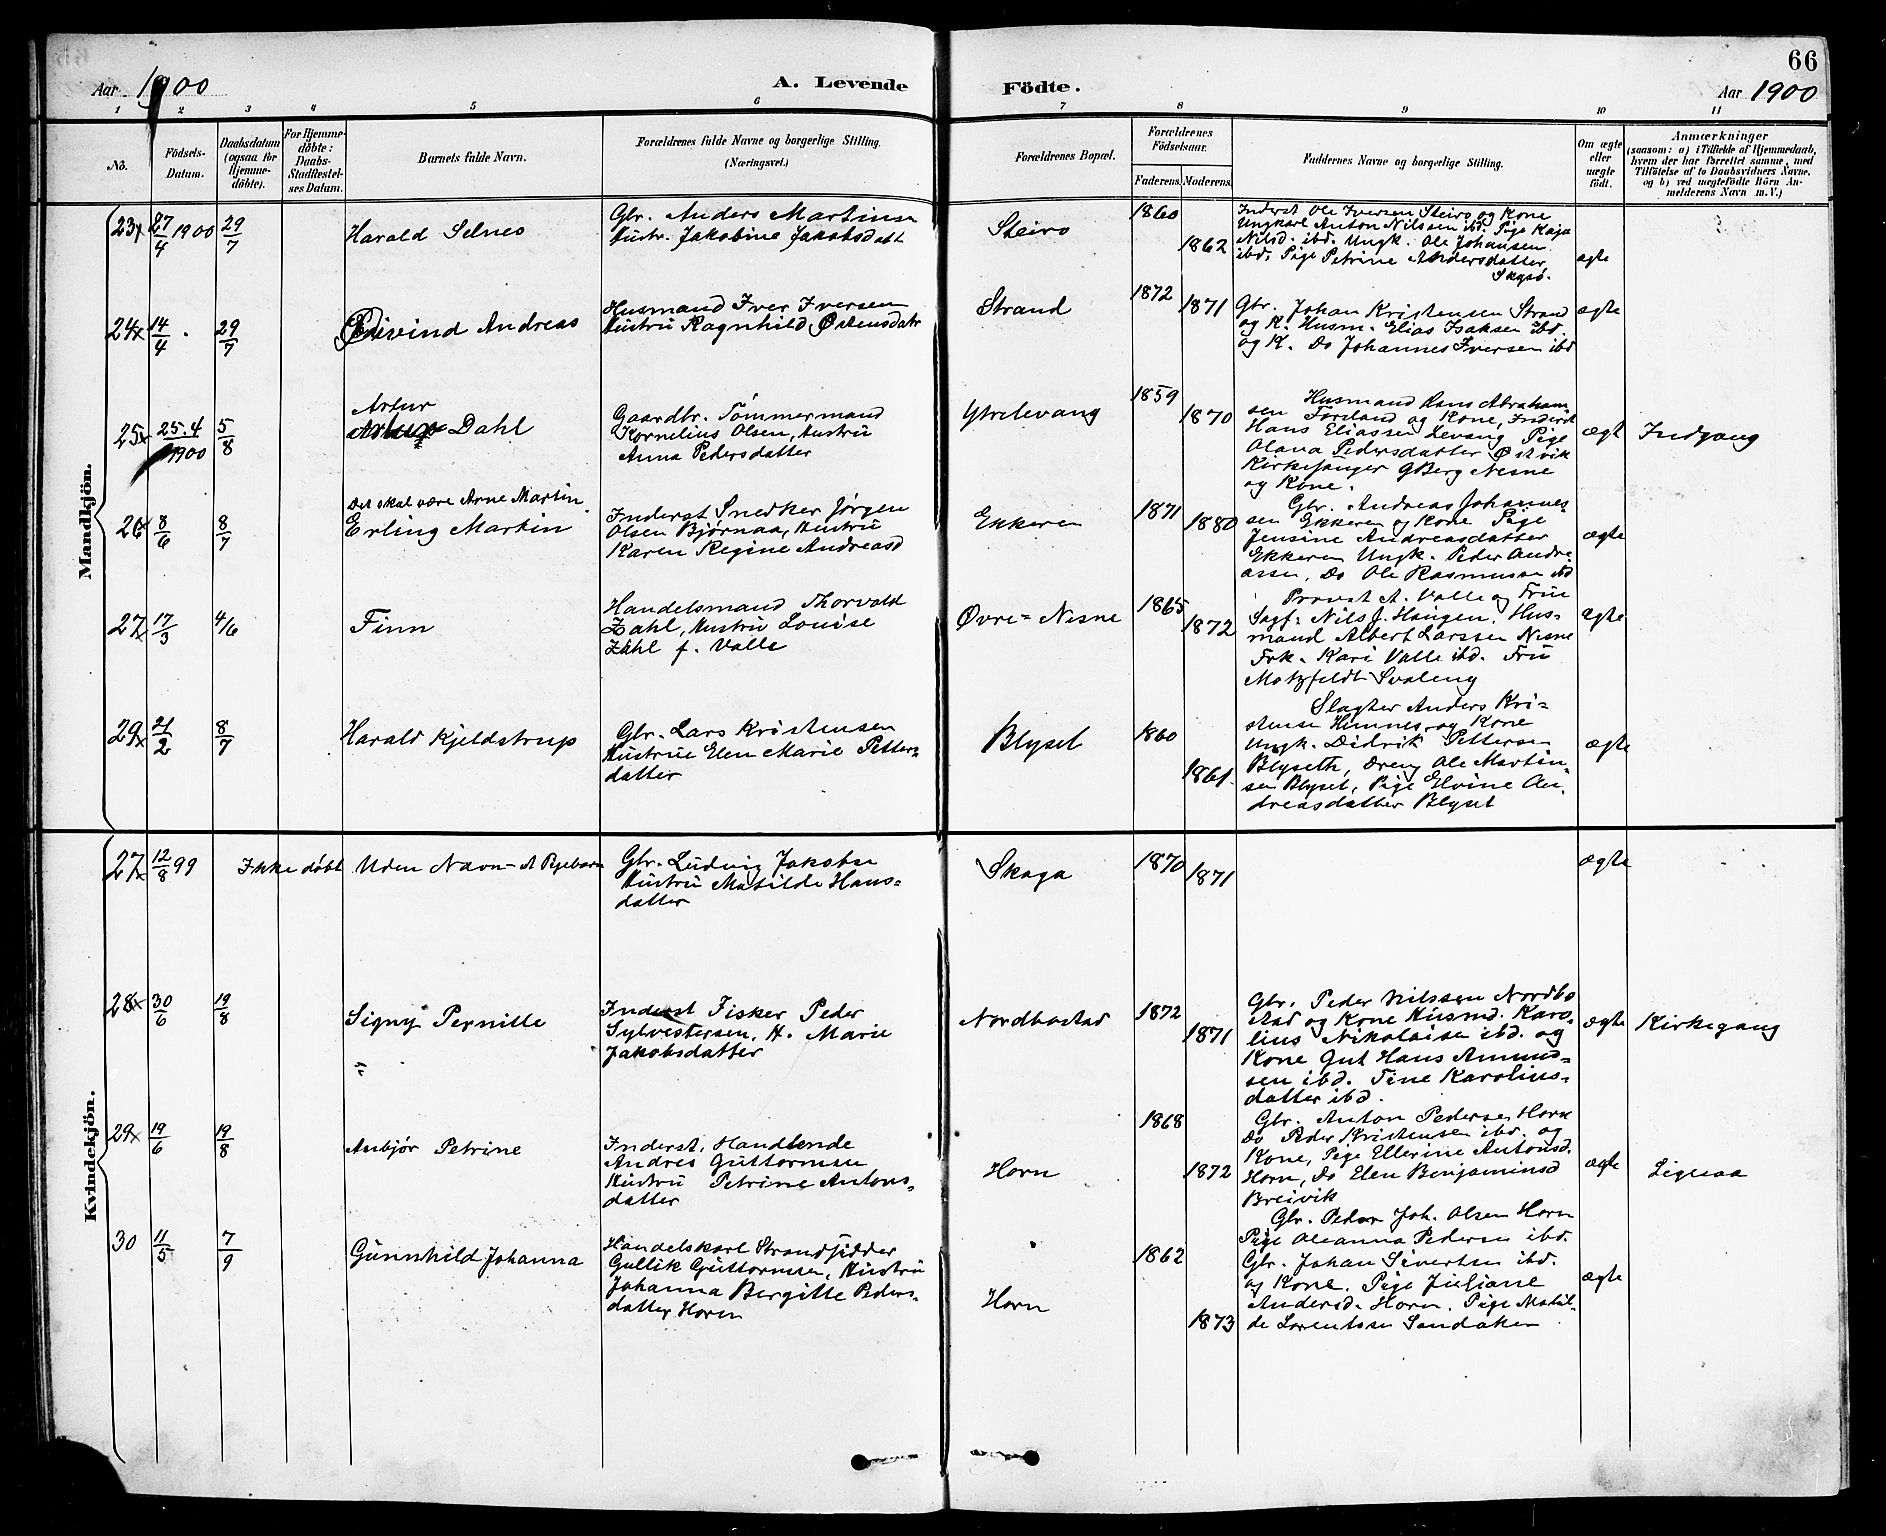 66
Aar 1900
A. Levende
Födte.
Aar 1900
1 2 3 4 5 6 7 8 9 10 11
No.
Födsels-
Datum.
Daabsdatum
(ogsaa for
Hjemme-
döbte).
For Hjemme-
döbte:
Daabs-
Stadfæstel-
ses Datum.
Barnets fulde Navn.
Forældrenes fulde Navne og borgerlige Stilling.
(Næringsvei.)
Forældrenes Bopæl.
Forældrenes
Födselsaar.
Faderens. Moderens.
Faddernes Navne og borgerlige Stilling.
Om ægte
eller
uægte
födt.
Anmærkninger
(saasom: a) i Tilfælde af Hjemmedaab,
hvem der har forrettet samme, med
Tilföielse af to Daabsvidners Navne,
og b) ved uægtefödte Börn An-
melderens Navn m. V.)
Mandkjön.
23x 27/4 1900 29/7
Harald Selnes
Gbr. Anders Martinsen
Hustr. Jakobine Jakobsdatt
Steiro
1860
1862
Inderst Ole Iversen Steiro og Kone
Ungkarl Anton Nilssen ibd. Pige Kaja
Nilsd. ibd. Ungk. Ole Johansen
ibd. Pige Petrine Andersdatter
ægte
24x 14/4 29/7
Eivind Andreas
Husmand Iver Iversen
Hustru Ragnhild Østensdatr
Strand
1872
1871
Gbr. Johan Kristensen Strand
og K. Husm. Elias Isaksen ibd.
og K. Do Johannes Iversen ibd
ægte
25x 25.4/1900 5/8
Artur
Dahl
Gaardbr. Tømmermand
Kornelius Olsen, Hustru
Anna Pedersdatter
Ytrelevang
1859
1870
Husmand Hans Abraham
sen Forsland og Kone, Inderst
Hans Eliassen Levang Pige
Olana Pedersdatter Østvik
Kirkesanger GBerg Nesne
og Kone.
ægt
Indgang
26x 8/6 8/7
Det skal være Arne Martin.
Erling Martin
Inderst Snedker Jørgen
Olsen Bjørnaa, Hustru
Karen Regine Andreasd
Ekkeren
1871
1880
Gbr. Andreas Johannes
sen Ekkeren og Kone Pige
Jensine Andreasdatter
Ekkeren Ungk. Peder Andre
asen, Do Ole Rasmussen ibd
ægte
27x 17/3 4/6
Finn
Handelsmand Thorvald
Zahl, Hustru Louise
Zahl f. Valle
Øvre=Nesne
1865
1872
Provst A. Valle og Frue
Sagf: Nils J. Haugen. Hus-
mand Albert Larssen Nesne
Frk. Kari Valle ibd. Fru
Motzfeldt Svaleng
ægte
29x 21/2 8/7
Harald Kjeldstrup
Gbr. Lars Kristensen
Hustrue Elen Marie Petters-
datter
Blyset
1860
1861
Slagter Anders Kri-
stensen Himnes og Kone
Ungk. Didrik Pettersen
Blyseth, Dreng Ole Martin-
sen Blyset, Pige Elvine An-
dreasdatter Blyset
ægte
Kvindekjön.
27x 12/8 99 Ikke døbt
Uden Navn - Pigebarn
Gbr. Ludvig Jakobsen
Hustru Matilde Hans-
datter
Skaga
1870
1871
ægte
28x 30/6 19/8
Signy Pernille
Inderst Fisker Peder
Sylvestersen, H. Marie
Jakobsdatter
Nordbostad
1872
1871
Gbr. Peder Nilssen Nordbo
stad og Kone Husmd. Karo-
lius Nikolaisen ibd. og
Kone Gut Hans Amund-
sen ibd. Tine Karolius-
datter ibd.
ægte
Kirkegang
29x 19/6 19/8
Anbjør Petrine
Inderst, Handlende
Andres Guttormsen
Hustru Petrine Antons-
datter
Horn
1868
1872
Gbr. Anton Pedersen Horn
Do Peder Kristensen ibd. og
Kone, Pige Ellerine Antonsd.
Horn, Do Elen Benjaminsd
Breivik
ægte
Ligesaa
30 11/5 7/9
Gunnhild Johanna
Handelskarl Strandsidder
Gullik Guttormsen, Hustru
Johanna Bergitte Peders-
datter Horn
Horn
1862
1873
Gbr. Peder Joh. Olsen Horn
Pige Oleanna Pedersen ibd.
Gbr. Johan Sivertsen ibd.
og Kone. Pige Juliane
Andersd. Horn. Pige Matil-
de Lorentsen Sandaker
ægte